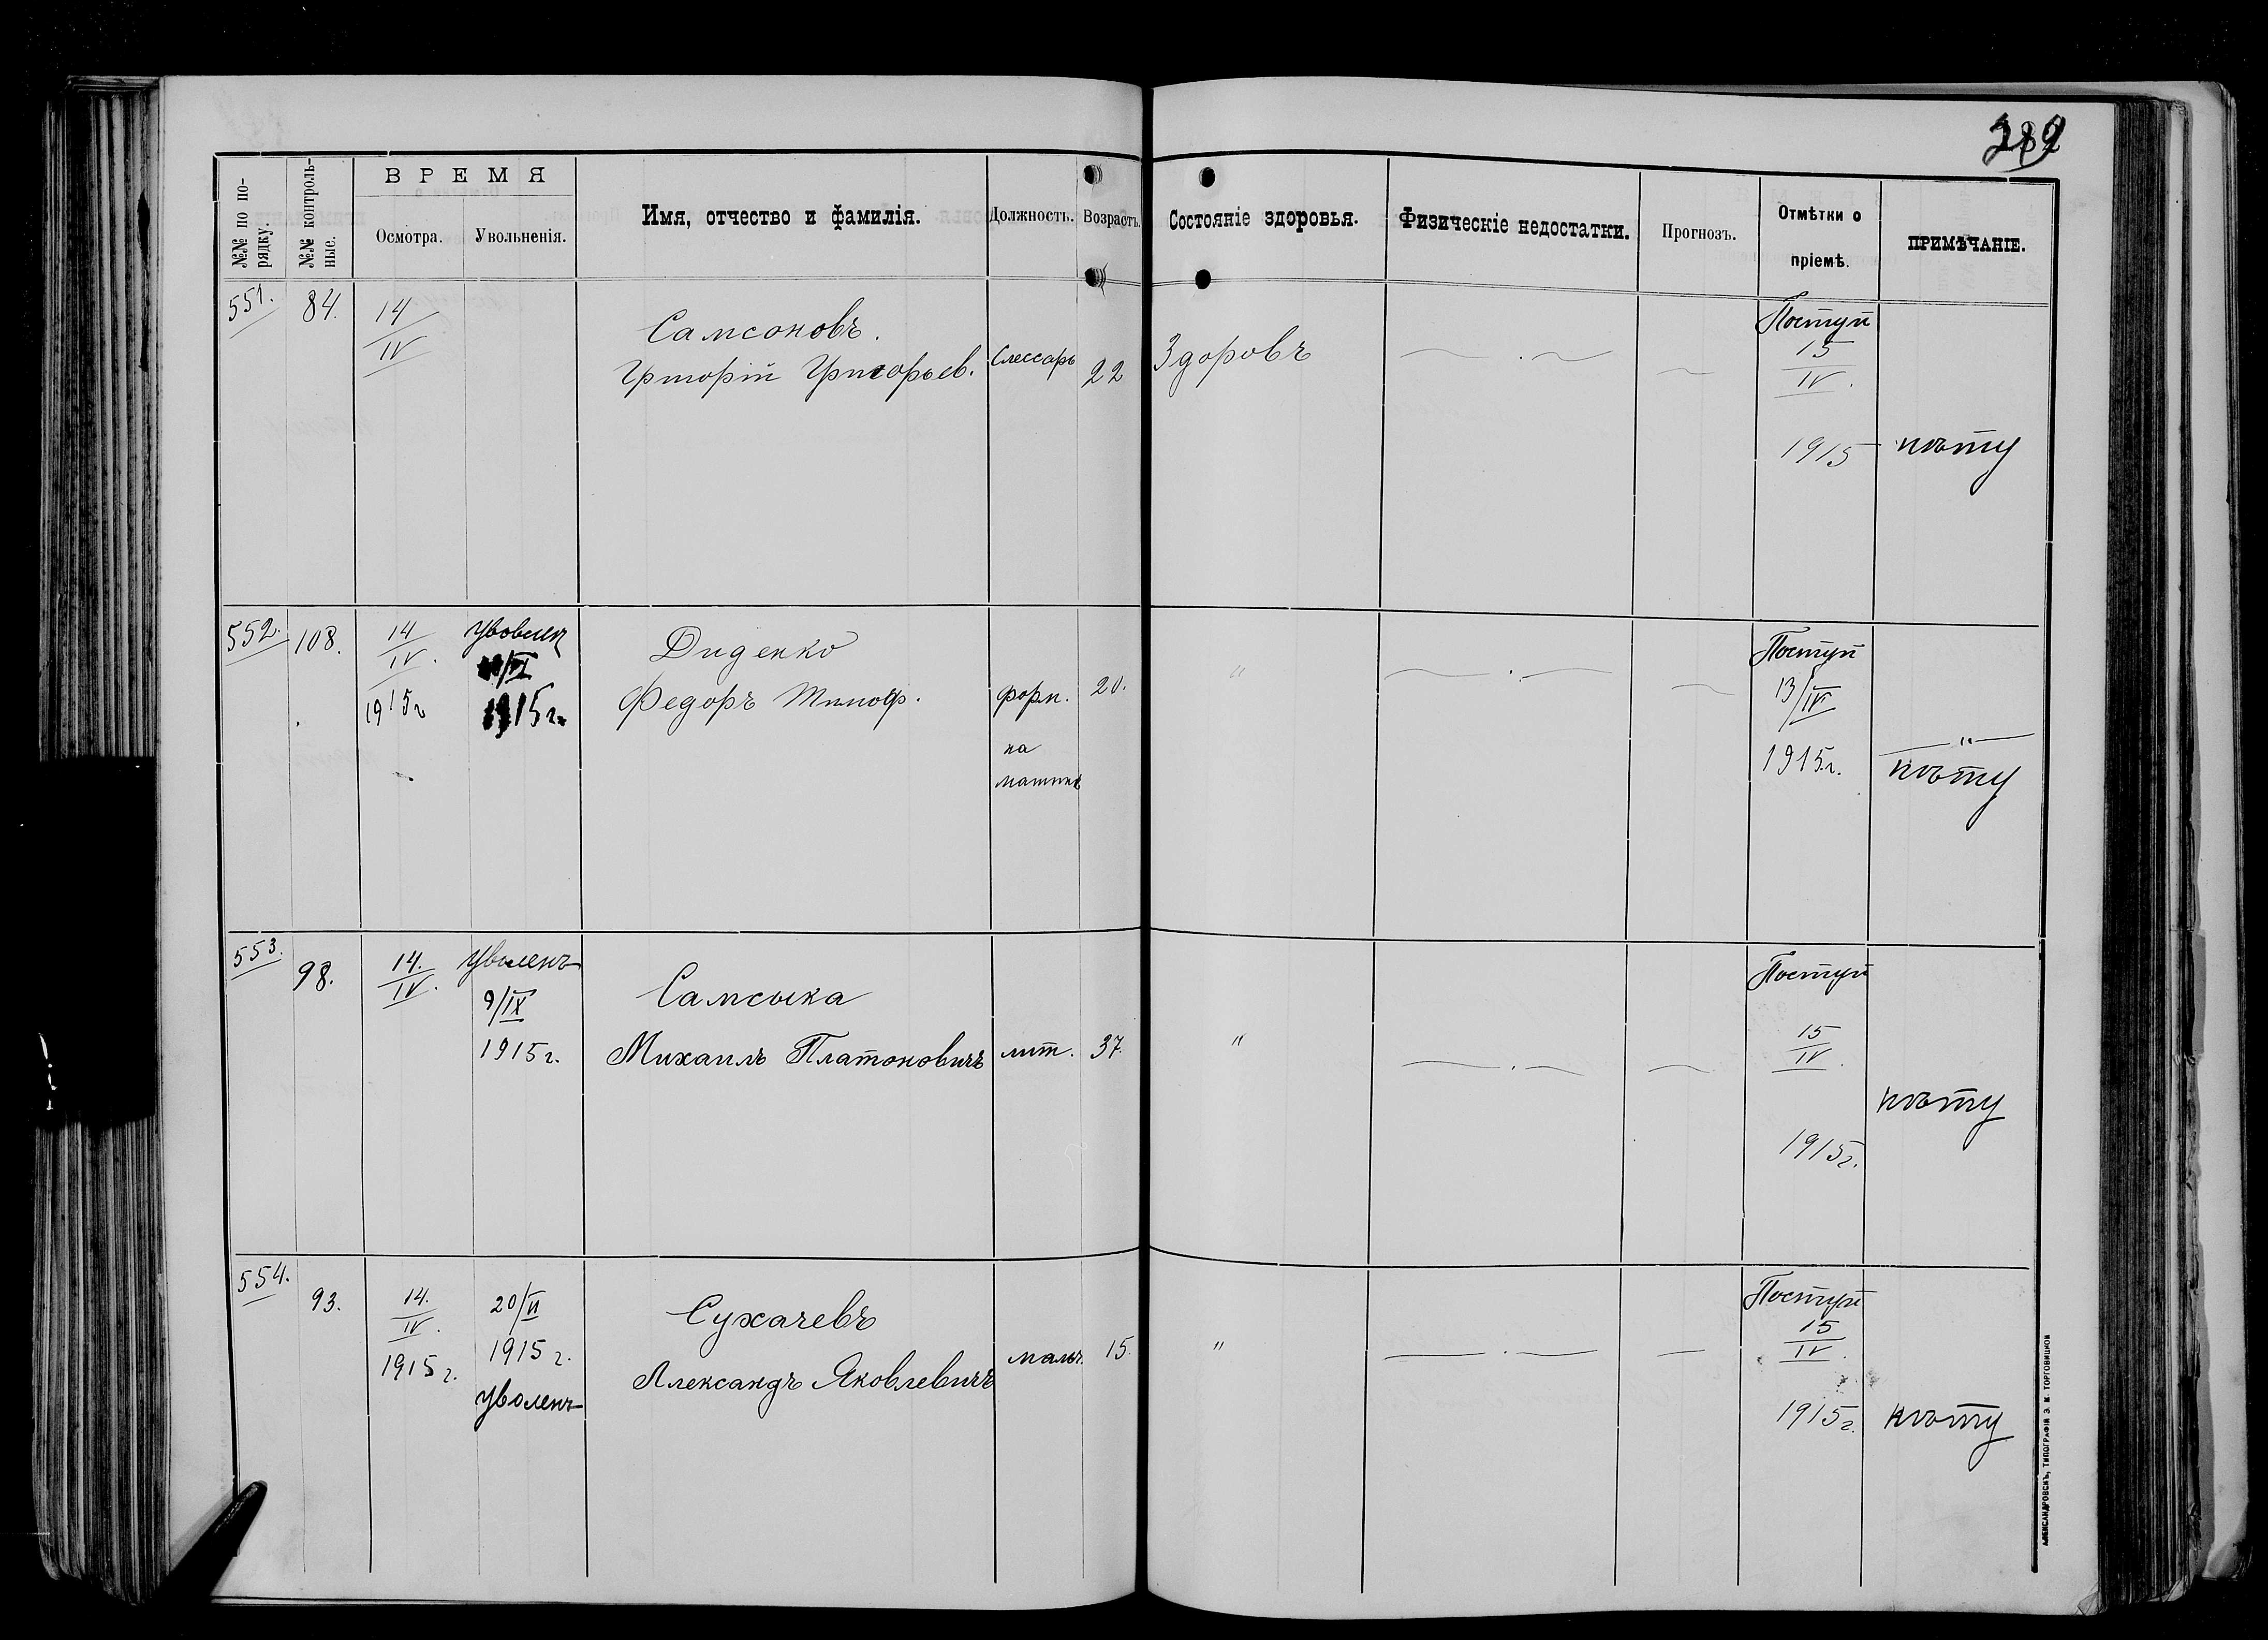 №№ по по-
рядку.
№№ контроль-
ные.
ВРЕМЯ
Осмотра.
Увольненія.
Имя, отчество и фамилія.
Должность.
Возрастъ.
Состояніе здоровья.
Физическіе недостатки.
Прогнозъ.
Отмѣтки о
пріемѣ.
ПРИМѢЧАНІЕ.
551.
84.
14
IV
Самсоновъ.
Григорій Григорьев.
Слессарь
22
Здоровъ
Поступ
15
IV.
1915
552.
108.
14
IV.
1915г
VI
1915г.
Диденко
Федоръ Тимоф.
форм.
на
машинѣ
20.
"
Поступ
13/IV
1915г.
"
553.
98.
14.
IV.
Уволенъ
9/IX
1915г.
Самсыка
Михаилъ Платоновичъ
лит.
37.
"
Поступ
15
IV.
1915г.
554.
93.
14.
IV.
1915г.
20/VI
1915г.
Уволенъ
Сухачевъ
Александъ Яковлевичъ
мальч.
15.
"
Поступ
15
IV.
1915г.
АЛЕКСАНДРОВСКЪ, ТИПОГРАФІЯ Э. И. ТОРГОВИЦКОЙ